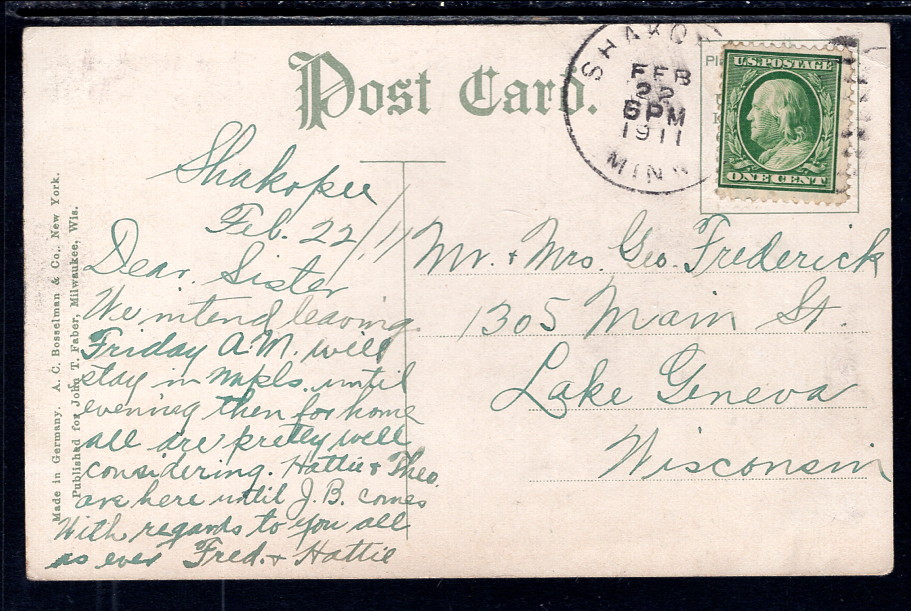 Post Card.
SHAKO
FEB
22
6 PM
1911
MINN
U.S. POSTAGE
ONE CENT
Made in Germany. A. C. Bosselman & Co., New York.
Published for John T. Faber, Milwaukee, Wis.
Shakopee
Feb. 22/11
Dear Sister
We intend leaving
Friday A.M. will
stay in Mpls. until
evening then for home
all are pretty well
considering. Hattie & Theo.
are here until J.B. comes
With regards to you all
as ever Fred. & Hattie
Mr. & Mrs. Geo. Frederick
1305 Main St.
Lake Geneva
Wisconsin